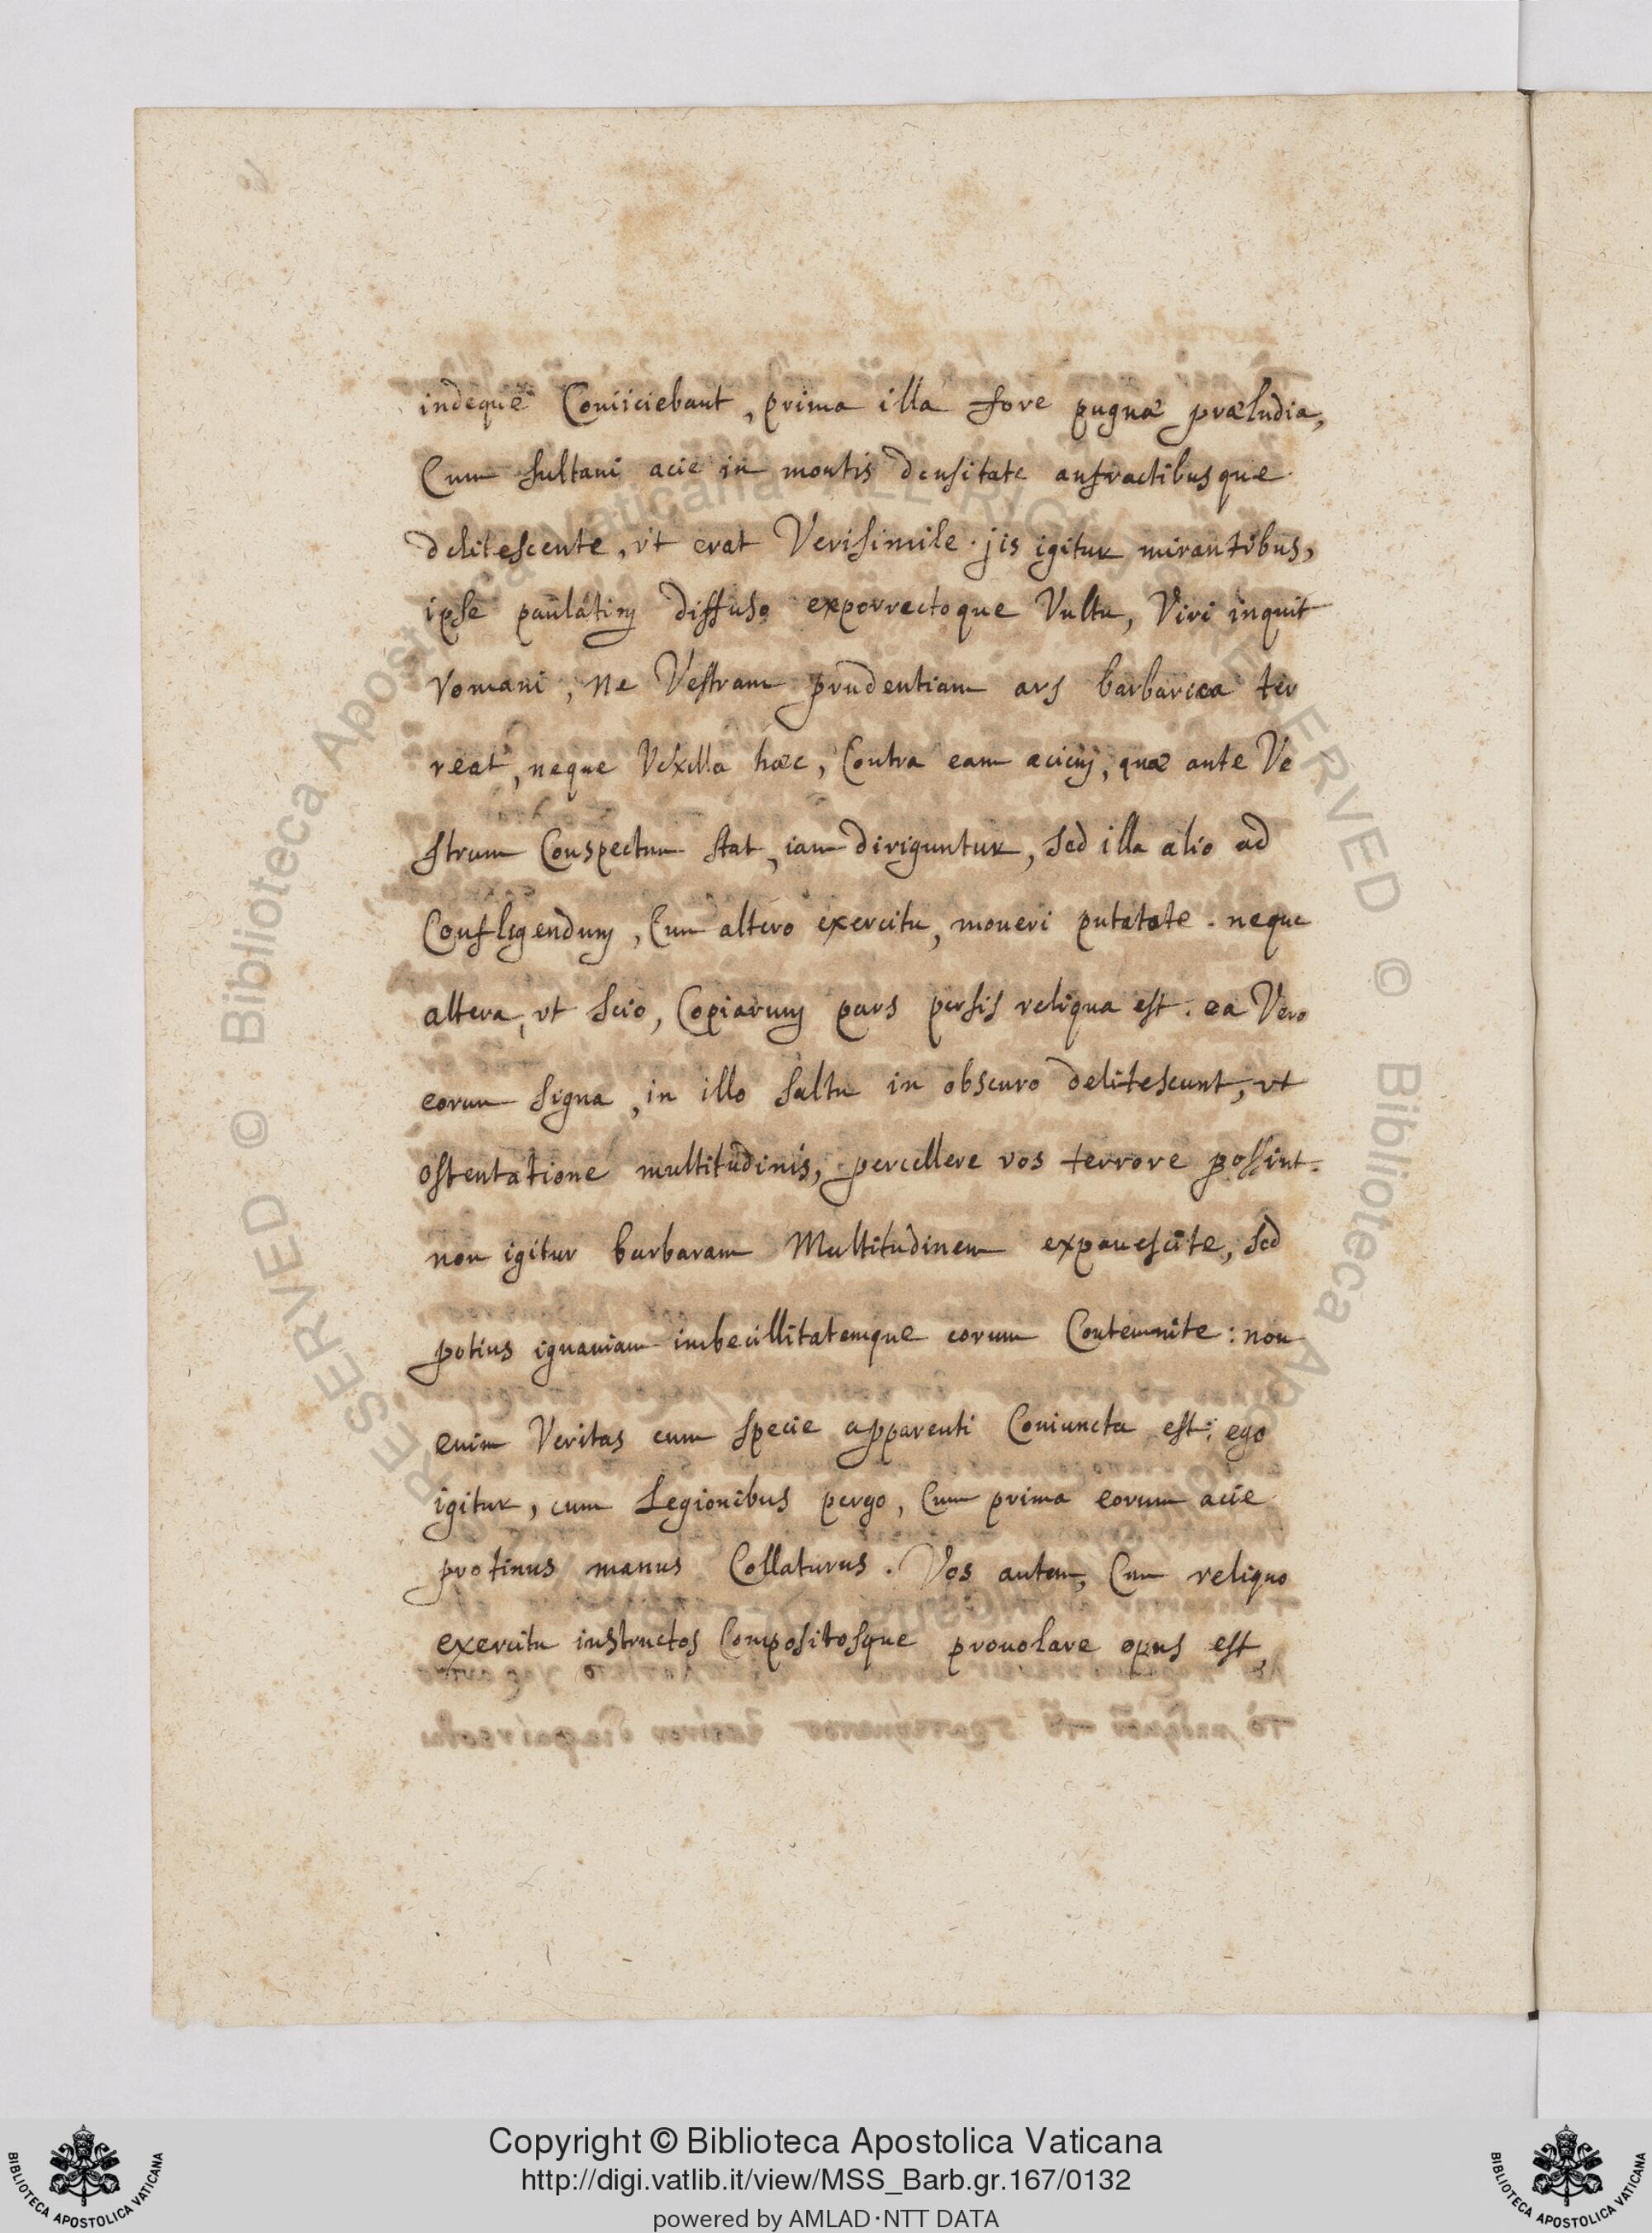 indeque Coniiciebant, prima illa fore pugnæ præludia,
Cum sultani acie in montis densitate anfractibusque
delitescente, vt erat Verisimile. jis igitur mirantibus,
ipse paulatim diffuso exporrectoque Vultu, Viri inquit
romani, ne Vestram prudentiam ars barbarica ter
reat, neque Vexilla hæc, Contra eam aciem, quæ ante Ve
strum Conspectum stat, iam diriguntur, sed illa alio ad
Confligendum, Cum altero exercitu, moueri putatote. neque
altera, vt scio, Copiarum pars persis reliqua est. ea Vero
eorum signa, in illo saltu in obscuro delitescunt, vt
ostentatione multitudinis, percellere vos terrore possint.
non igitur barbaram Multitudinem expauescite, sed
potius ignauiam imbecillitatemque eorum Contemnite: non
enim Veritas cum specie apparenti Coniuncta est: ego
igitur, cum Legionibus pergo, Cum prima eorum acie
protinus manus Collaturus. Vos autem, Cum reliquo
exercitu instructos Compositosque prouolare opus est,
Copyright © Biblioteca Apostolica Vaticana
http://digi.vatlib.it/view/MSS_Barb.gr.167/0132
powered by AMLAD·NTT DATA
BIBLIOTECA APOSTOLICA VATICANA
BIBLIOTECA APOSTOLICA VATICANA